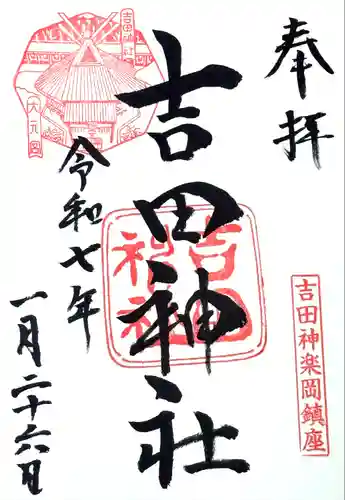 奉拝
吉田神楽岡鎮座
吉田神社
吉田神社
吉田神社
大元宮
令和七年
一月二十六日